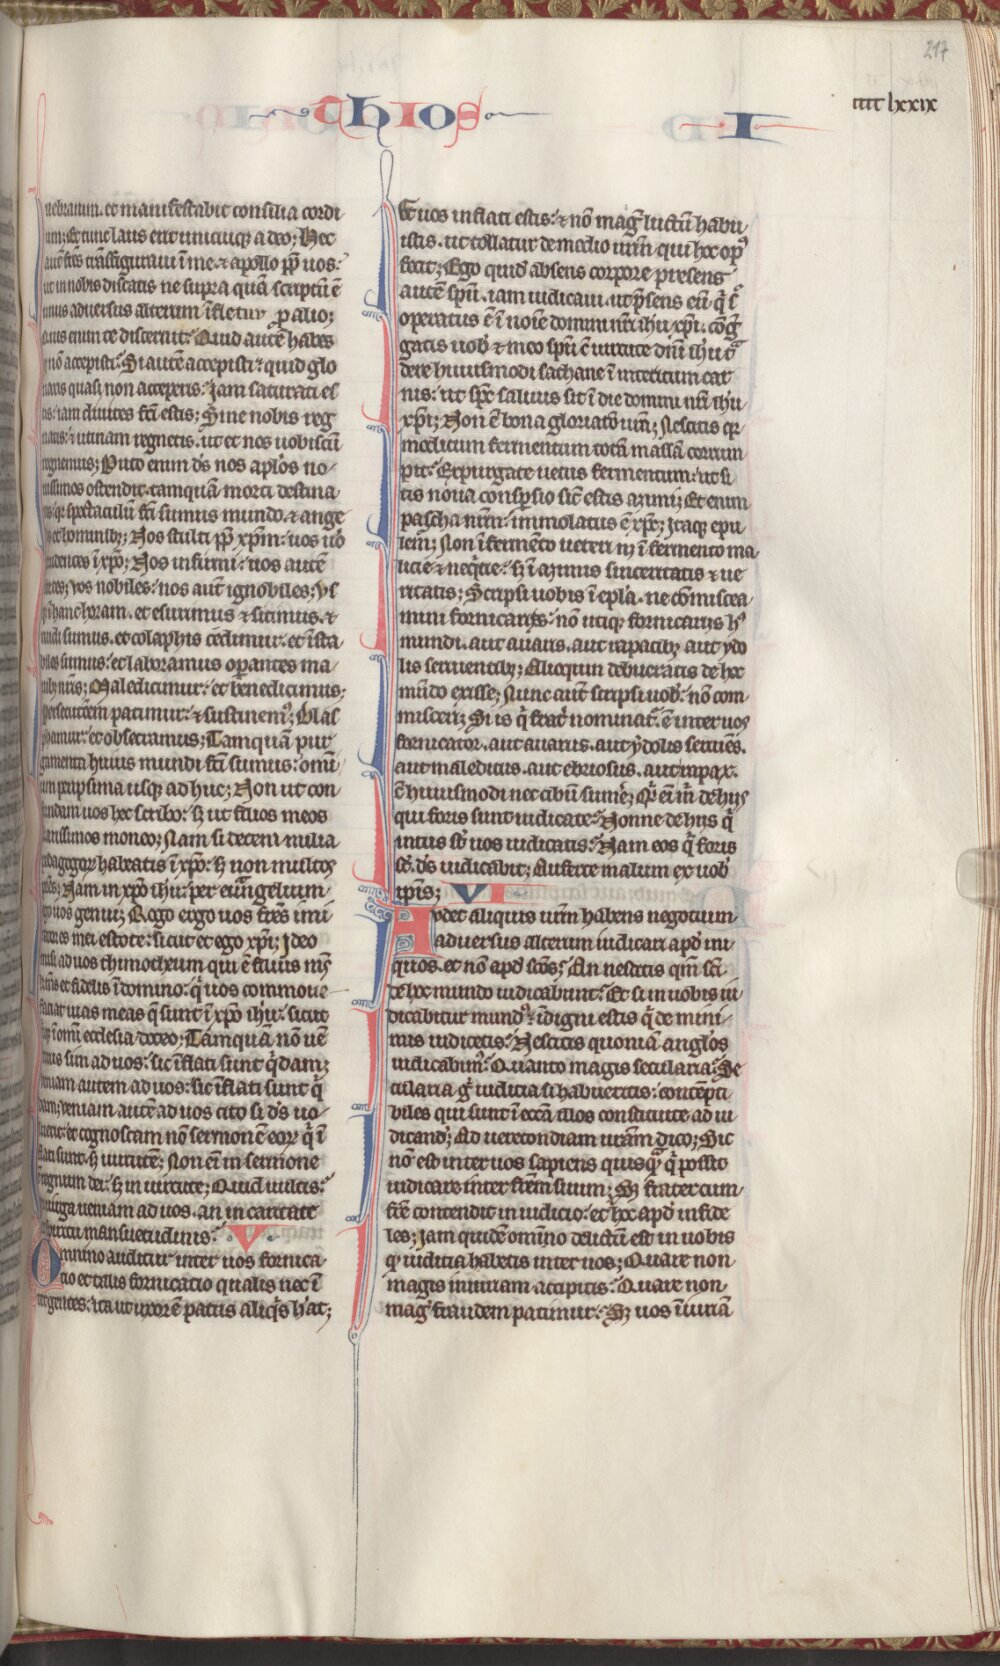 217
chios I
iiii lxxix
nebrarum. et manifestabit consilia cordi
um; Et tunc laus erit unicuiq; a deo; Hec
aut̄ fr̄es trāsfiguraui ī me. et apollo pp̄ uos.
ut in nobis discatis ne supra quā scriptū ē
unus aduersus alterum īfletur pro alio;
Quis enim te discernit. Quid autē habes
nō accepisti. Si autē accepisti. quid glo
riaris quasi non acceperis. Jam saturati es
tis. iam diuites fc̄i estis; Sine nobis reg
natis. utinam regnetis. ut et nos uobiscū
regnemus; Puto enim d̄s nos apl̄os no
uissimos ostendit. tamquā morti destina
tos. qr spectaculū fc̄i sumus mundo. et ange
lis et hominib; Nos stulti pp̄ xp̄m. uos uō
prudentes ī xp̄o; Nos infirmi. uos autē
fortes; vos nobiles. nos aut̄ ignobiles; vs
q; ī hanc horam. et esurimus et sitimus. et
nudi sumus. et colaphis cedimur. et ista
biles sumus. et laboramus operantes ma
nib; nr̄is; Maledicimur. et benedicimus;
persecutōem patimur. et sustinem9; Blas
phamur. et obsecramus; Tamquā pur
gamenta huius mundi fc̄i sumus. omīu
um peripsima usq; adhuc; Non ut con
fundam uos hec scribo. s; ut filios meos
karissimos moneo; Nam si decem milia
pedagogor̄ habeatis ī xp̄o. s; non multos
patres; Nam in xp̄o ihū. per euāngelium
ego uos genui; Rogo ergo uos fr̄es imi
tatores mei estote. sicut et ego xp̄i; Jdeo
misi ad uos thimotheum qui ē filius ms̄
karissim9 et fidelis ī domino. q̄ uos commone
faciat uias meas q̄ sunt ī xp̄o ihū. sicut
ubiq; ī omī ecclesia doceo; Tamquā nō uē
turus sim ad uos. sic īflati sunt q̄dam;
Veniam autem ad uos. sic īflati sunt q̄
dam; veniam autē ad uos cito si d̄s uo
luerit. et cognoscam nō sermonē eor̄ q̄ ī
flati sunt. s; uirtutē; Non eī in sermone
ē regnum dei. s; in uirtute; Quid uultis.
in uirga ueniam ad uos. an in caritate
et spiritu mansuetudinis. V
Omnino auditur inter uos fornica
tio et talis fornicatio qualis nec ī
ter gentes. ita ut uxorē patris aliq̄s h'at;
Et uos inflati estis. et nō mag̃ luctū habu
istis. ut tollatur de medio ur̄m qui hoc op9
fecit; Ego quid' absens corpore presens
autē sp̄u. iam iudicaui. ut p̄sens eū q̄ s̄
operatus ē ī noīe domini nr̄i ihū xp̄i. cōg̃
gatis uob' et meo sp̄u c̄ uirtute dn̄i ih'u t̃
dere huiusmodi sathane ī interitum car
nis. ut sp̄c saluus sit ī die domini nr̄i ihū
xp̄i; Non ē bona gloriatō ur̄a; Nescitis qr
modicum fermentum totā massā corrum
pit. Expurgate uetus fermentum. ut si
tis noua consp̄sio sic̄ estis azimi; Et enim
pascha nr̄m. immolatus ē xp̄c; Jtaq; epu
lem; Non ī fermēto ueteri n; ī fermento ma
licie et neq̄tie. s; ī azimis sinceritatis et ue
ritatis; Scripsi uobis ī epl̄a. ne cōmiscea
mini fornicariis. nō utiq; fornicariis h9
mundi. aut auaris. aut rapacib; aut ydo
lis seruientib; Alioquin debueratis de hoc
mūdo exisse; Nunc aut̄ scripsi uob'. nō com
misceri; Si is q̄ frat' nominat'. ē inter uos
fornicator. aut auarus. aut ydolis seruiēs.
aut maledicus. aut ebriosus. aut rapax.
c̄ huiusmodi nec cibū sumē; Q̄ eī m̄ de hijs
qui foris sunt iudicare. Nonne de hijs q̄
intus st̄ uos iudicatis. Nam eos q̄ foris
st̄. d̄s iudicabit; Auferte malum ex uob'
ip̄is; VI
Audet aliquis ur̄m habens negotium
aduersus alterum iudicari apd' ini
quos. et nō apd' scōs. An nescitis qm̄ scī
de hoc mundo iudicabunt. Et si in uobis iu
dicabitur mund9. īdigni estis q̄ de mini
mis iudicetis. Nescitis quoniā angl̄os
iudicabim9. Quanto magis secularia. Se
cularia g̃ iudicia si habueritis. contēpti
biles qui sunt ī eccā illos constituite ad iu
dicand'; Ad uerecondiam ur̄am dico; Sic
nō est inter uos sapiens quisq̃ q̄ possit
iudicare inter fr̄em suum; S; frater cum
fr̄e contendit in iudicio. et hoc apd' infide
les; Jam quidē omīno delictū est in uobis
q; iudicia habetis inter uos; Quare non
magis iniuriam accipitis. Quare non
mag' fraudem patimur. S; uos īiuriā